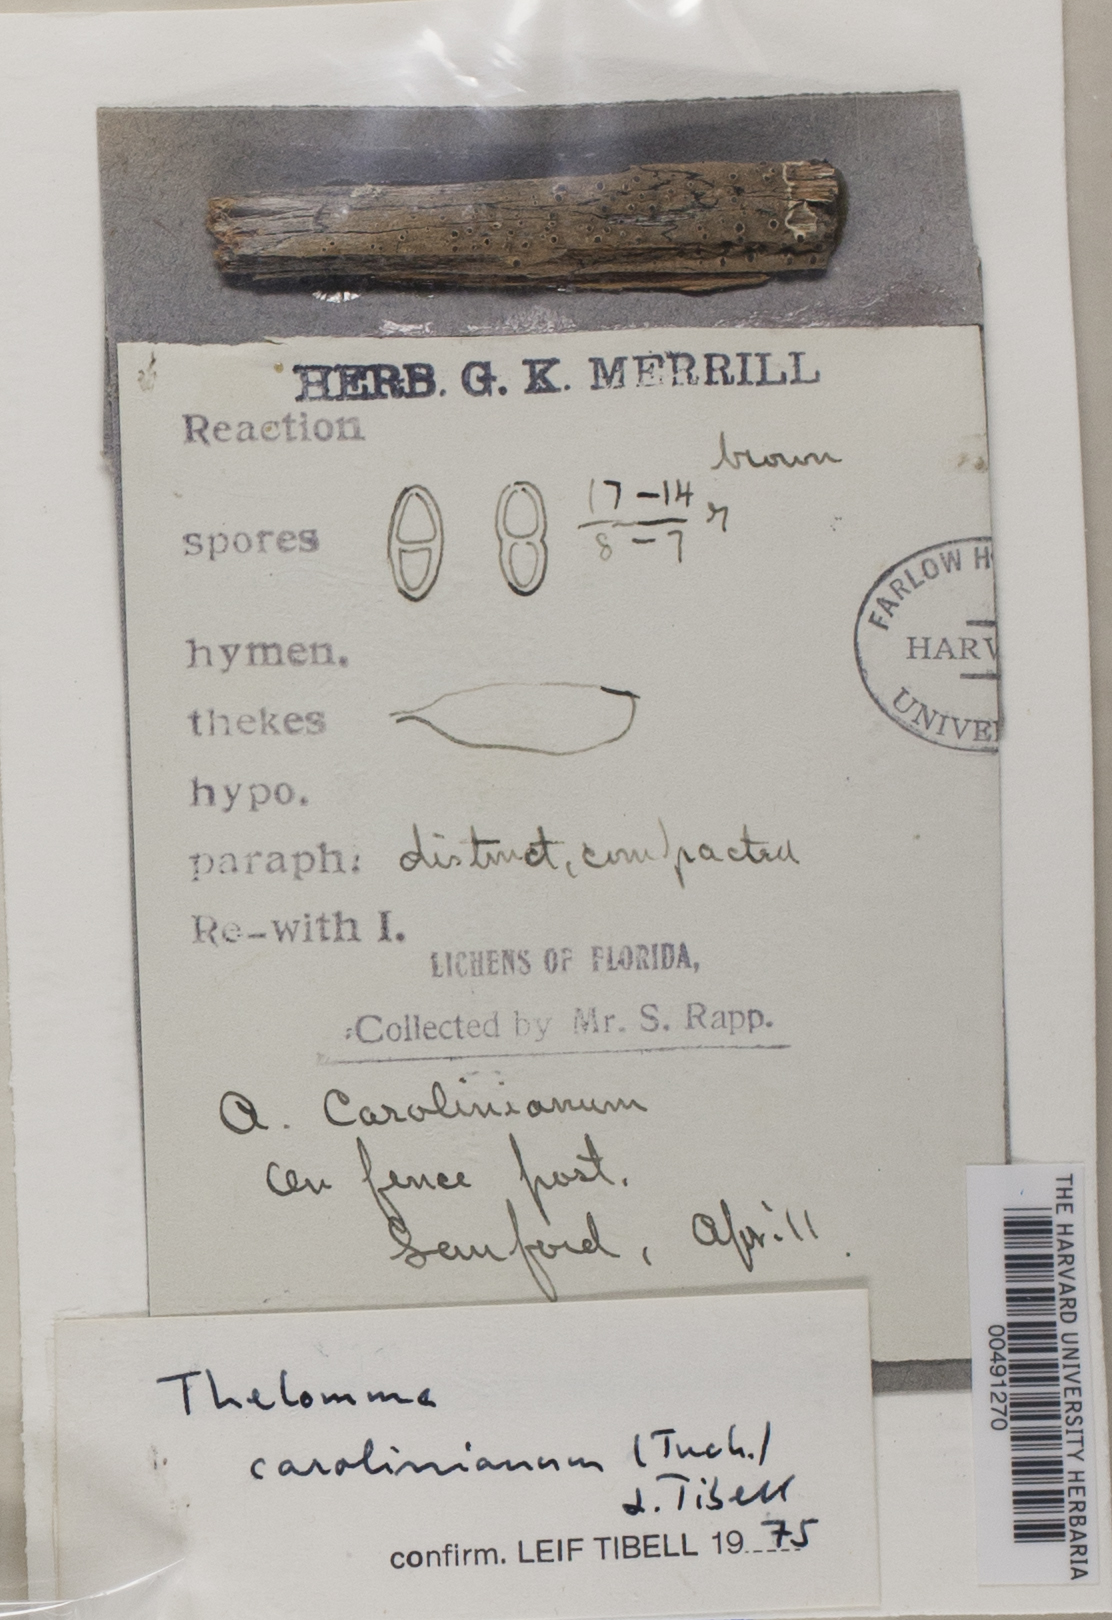 HERB. G. K. MERRILL
Reaction
brown
spores 17-14
8-7
hymen.
thekes
hypo.
paraph: distinct, compacted
Re-with I.
LICHENS OF FLORIDA,
Collected by Mr. S. Rapp.
A. Carolinianum
on fence post.
Sanford, Apr. 11.
FARLOW H
HARV
UNIVE
Thelomma
carolinianum (Tuck.)
L. Tibell
confirm. LEIF TIBELL 1975
THE HARVARD UNIVERSITY HERBARIA
00491270